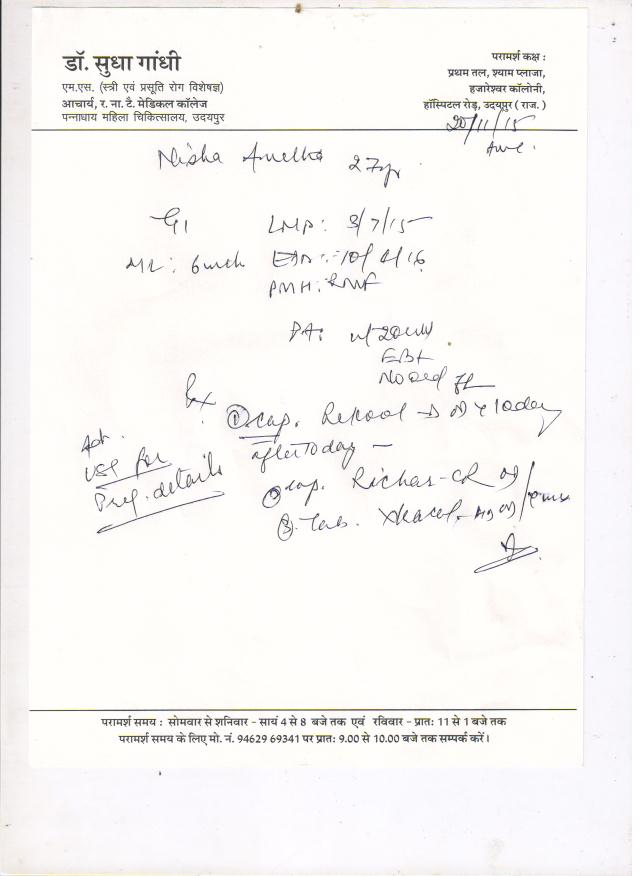 डॉ. सुधा गांधी
एम.एस. (स्त्री एवं प्रसूति रोग विशेषज्ञ)
आचार्य, र. ना. टै. मेडिकल कॉलेज
पन्नाधाय महिला चिकित्सालय, उदयपुर
परामर्श कक्ष :
प्रथम तल, श्याम प्लाजा,
हजारेश्वर कॉलोनी,
हॉस्पिटल रोड़, उदयपुर ( राज. )
20/11/15
Nisha 27yr
G1 LMP: 3/7/15
ML: 6mth EDD: 10/4/16
PMH:
PA: 20
Rx
① Cap. Rekool → 10day
after today —
② Cap. Richar-CR
③ Tab.
Adv.
USG for
Preg. details
परामर्श समय : सोमवार से शनिवार - सायं 4 से 8 बजे तक एवं रविवार - प्रातः 11 से 1 बजे तक
परामर्श समय के लिए मो. नं. 94629 69341 पर प्रातः 9.00 से 10.00 बजे तक सम्पर्क करें।